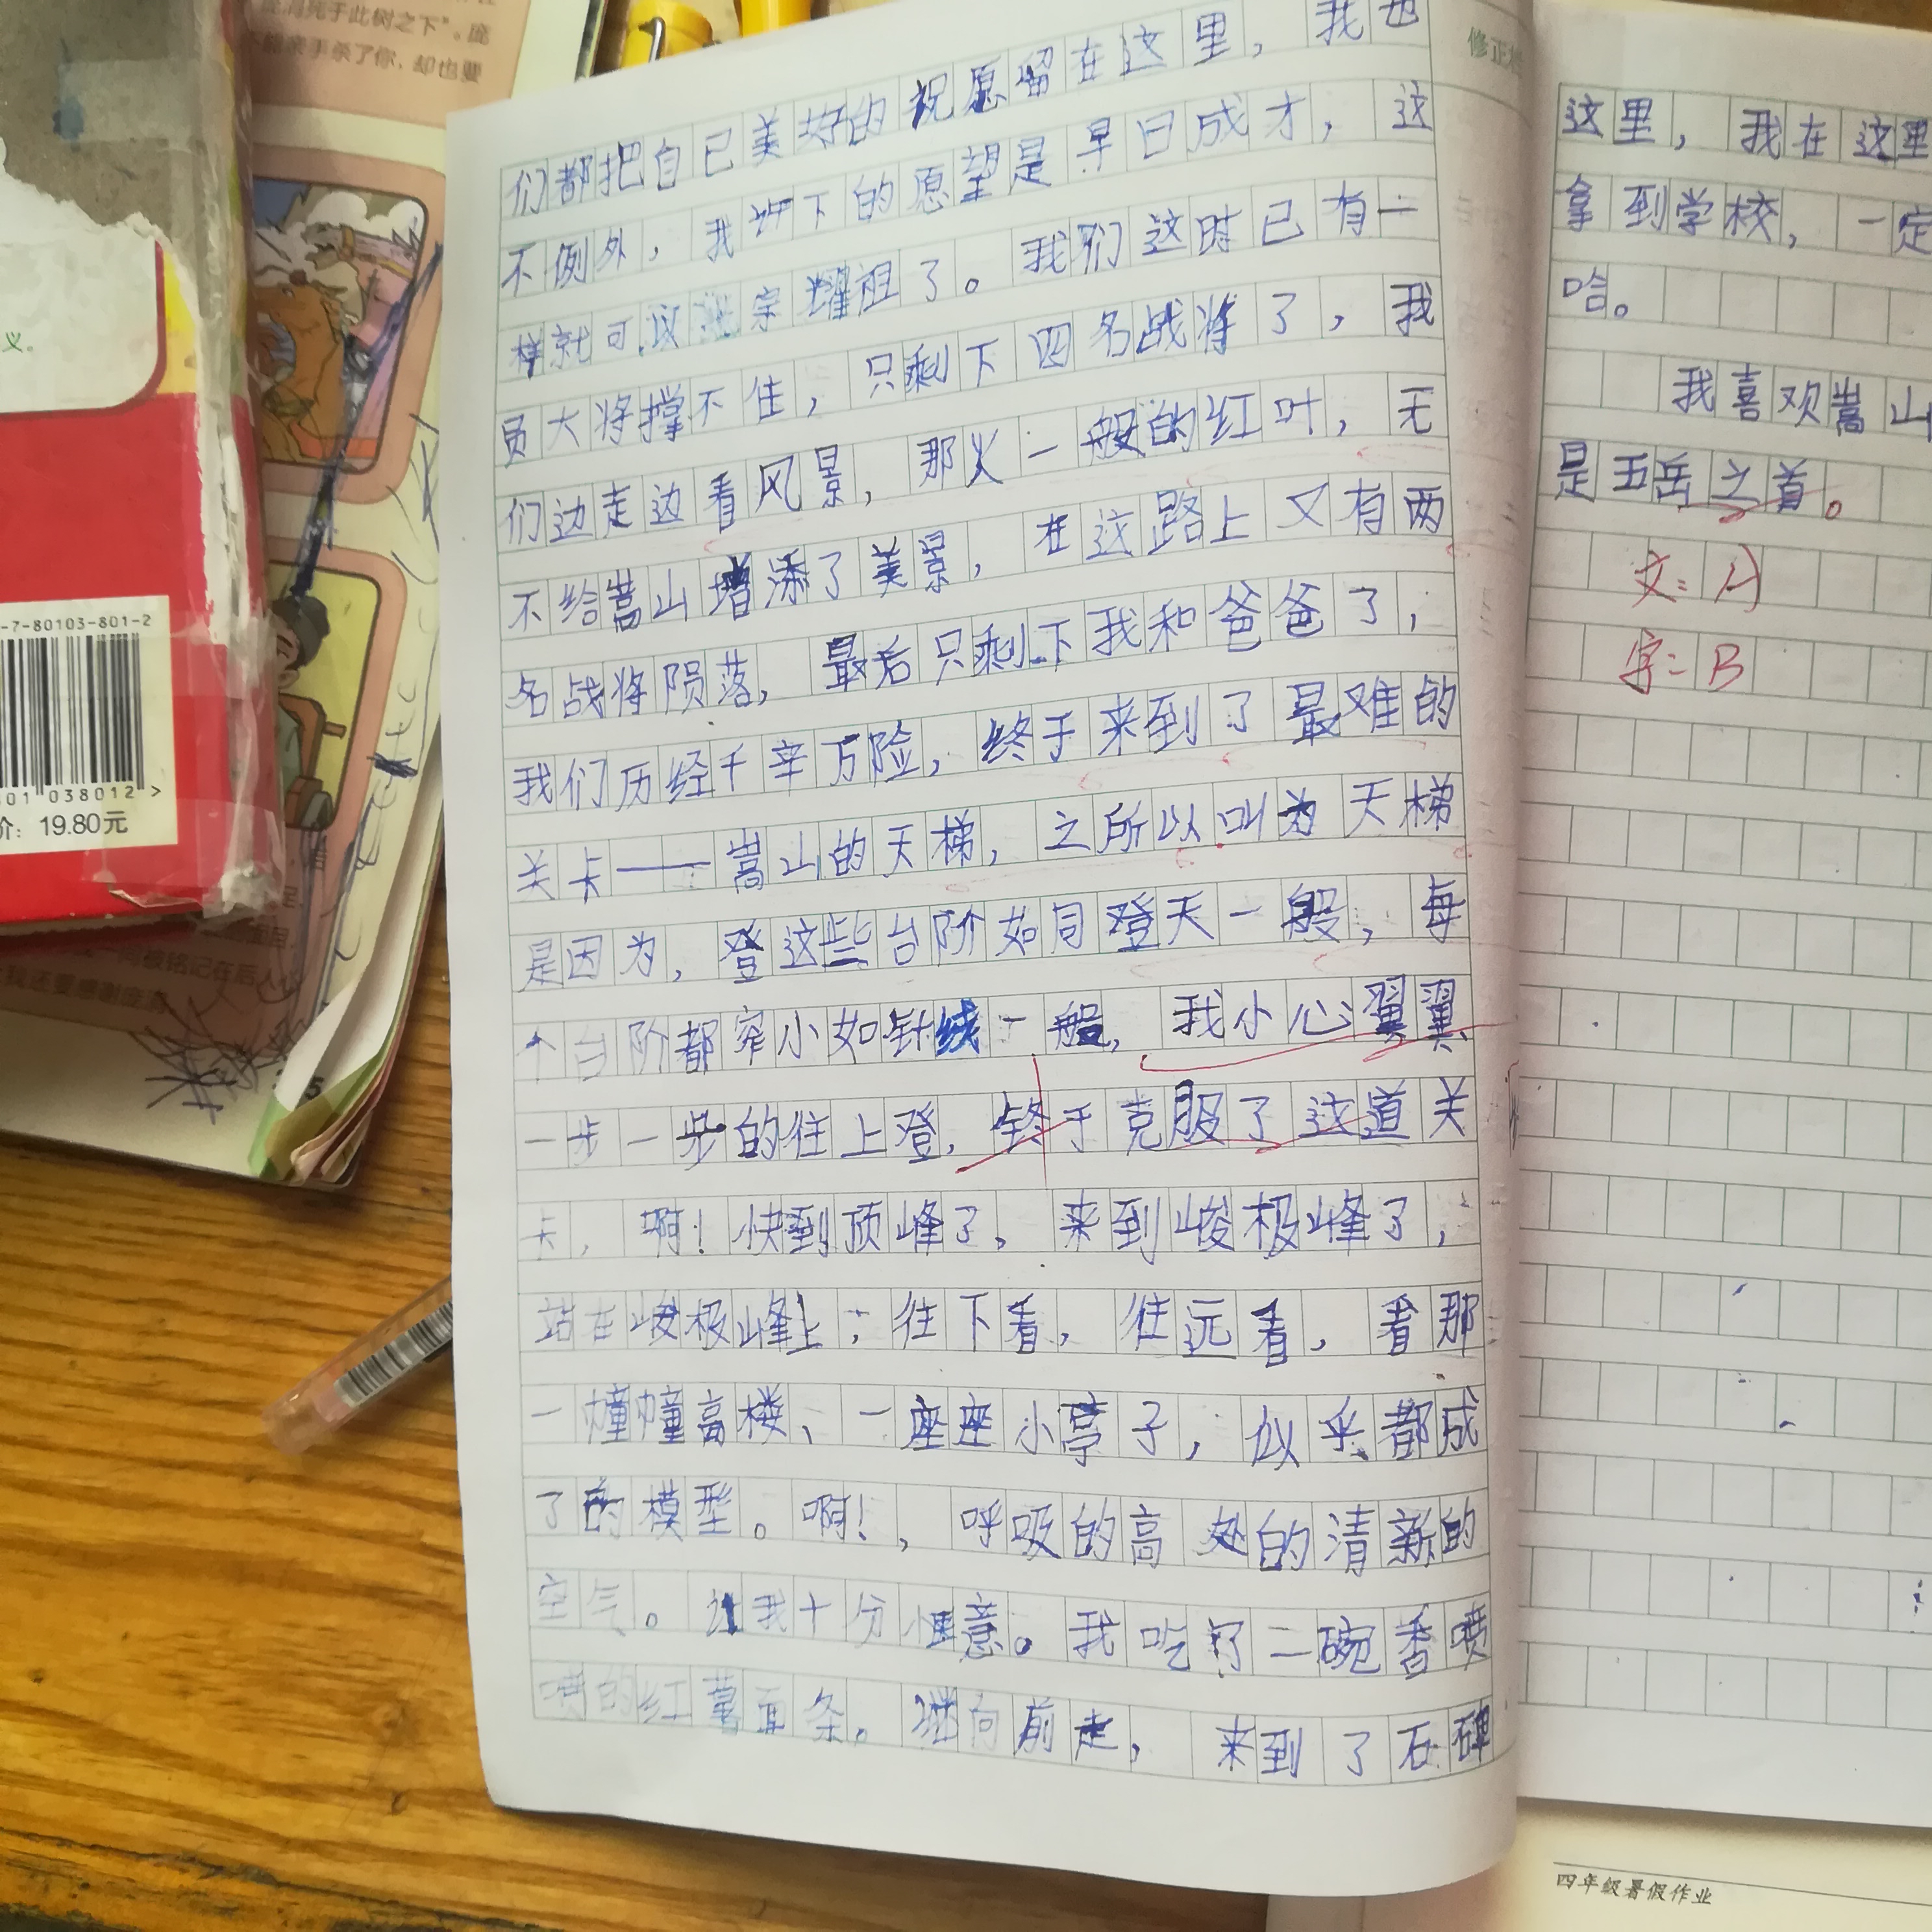 死于此树之下”。庞
亲手杀了你,却也要
义。
-7-80103-801-2
01 038012 >
价: 19.80元
铭记在后人心
我还要感谢庞涓
们都把自已美好的祝愿留在这里,我也
不例外,我许下的愿望是早日成才,这
样就可以光宗耀祖了。我们这时已有一
员大将撑不住,只剩下四名战将了,我
们边走边看风景,那火一般的红叶,无
不给嵩山增添了美景,在这路上又有两
名战将陨落,最后只剩下我和爸爸了,
我们历经千辛万险,终于来到了最难的
关卡——嵩山的天梯,之所以叫为天梯
是因为,登这些台阶如同登天一般,每
个台阶都窄小如针线一般,我小心翼翼
一步一步的往上登,终于克服了这道关
卡,啊!快到顶峰了。来到峻极峰了,
站在峻极峰上,往下看,往远看,看那
一幢幢高楼、一座座小亭子,似乎都成
了的模型。啊!,呼吸的高处的清新的
空气。让我十分惬意。我吃了二碗香喷
喷的红薯面条。继向前走,来到了石碑
修正栏
这里,我在这里
拿到学校,一定
哈。
我喜欢嵩山
是五岳之首。
文:A
字:B
四年级暑假作业